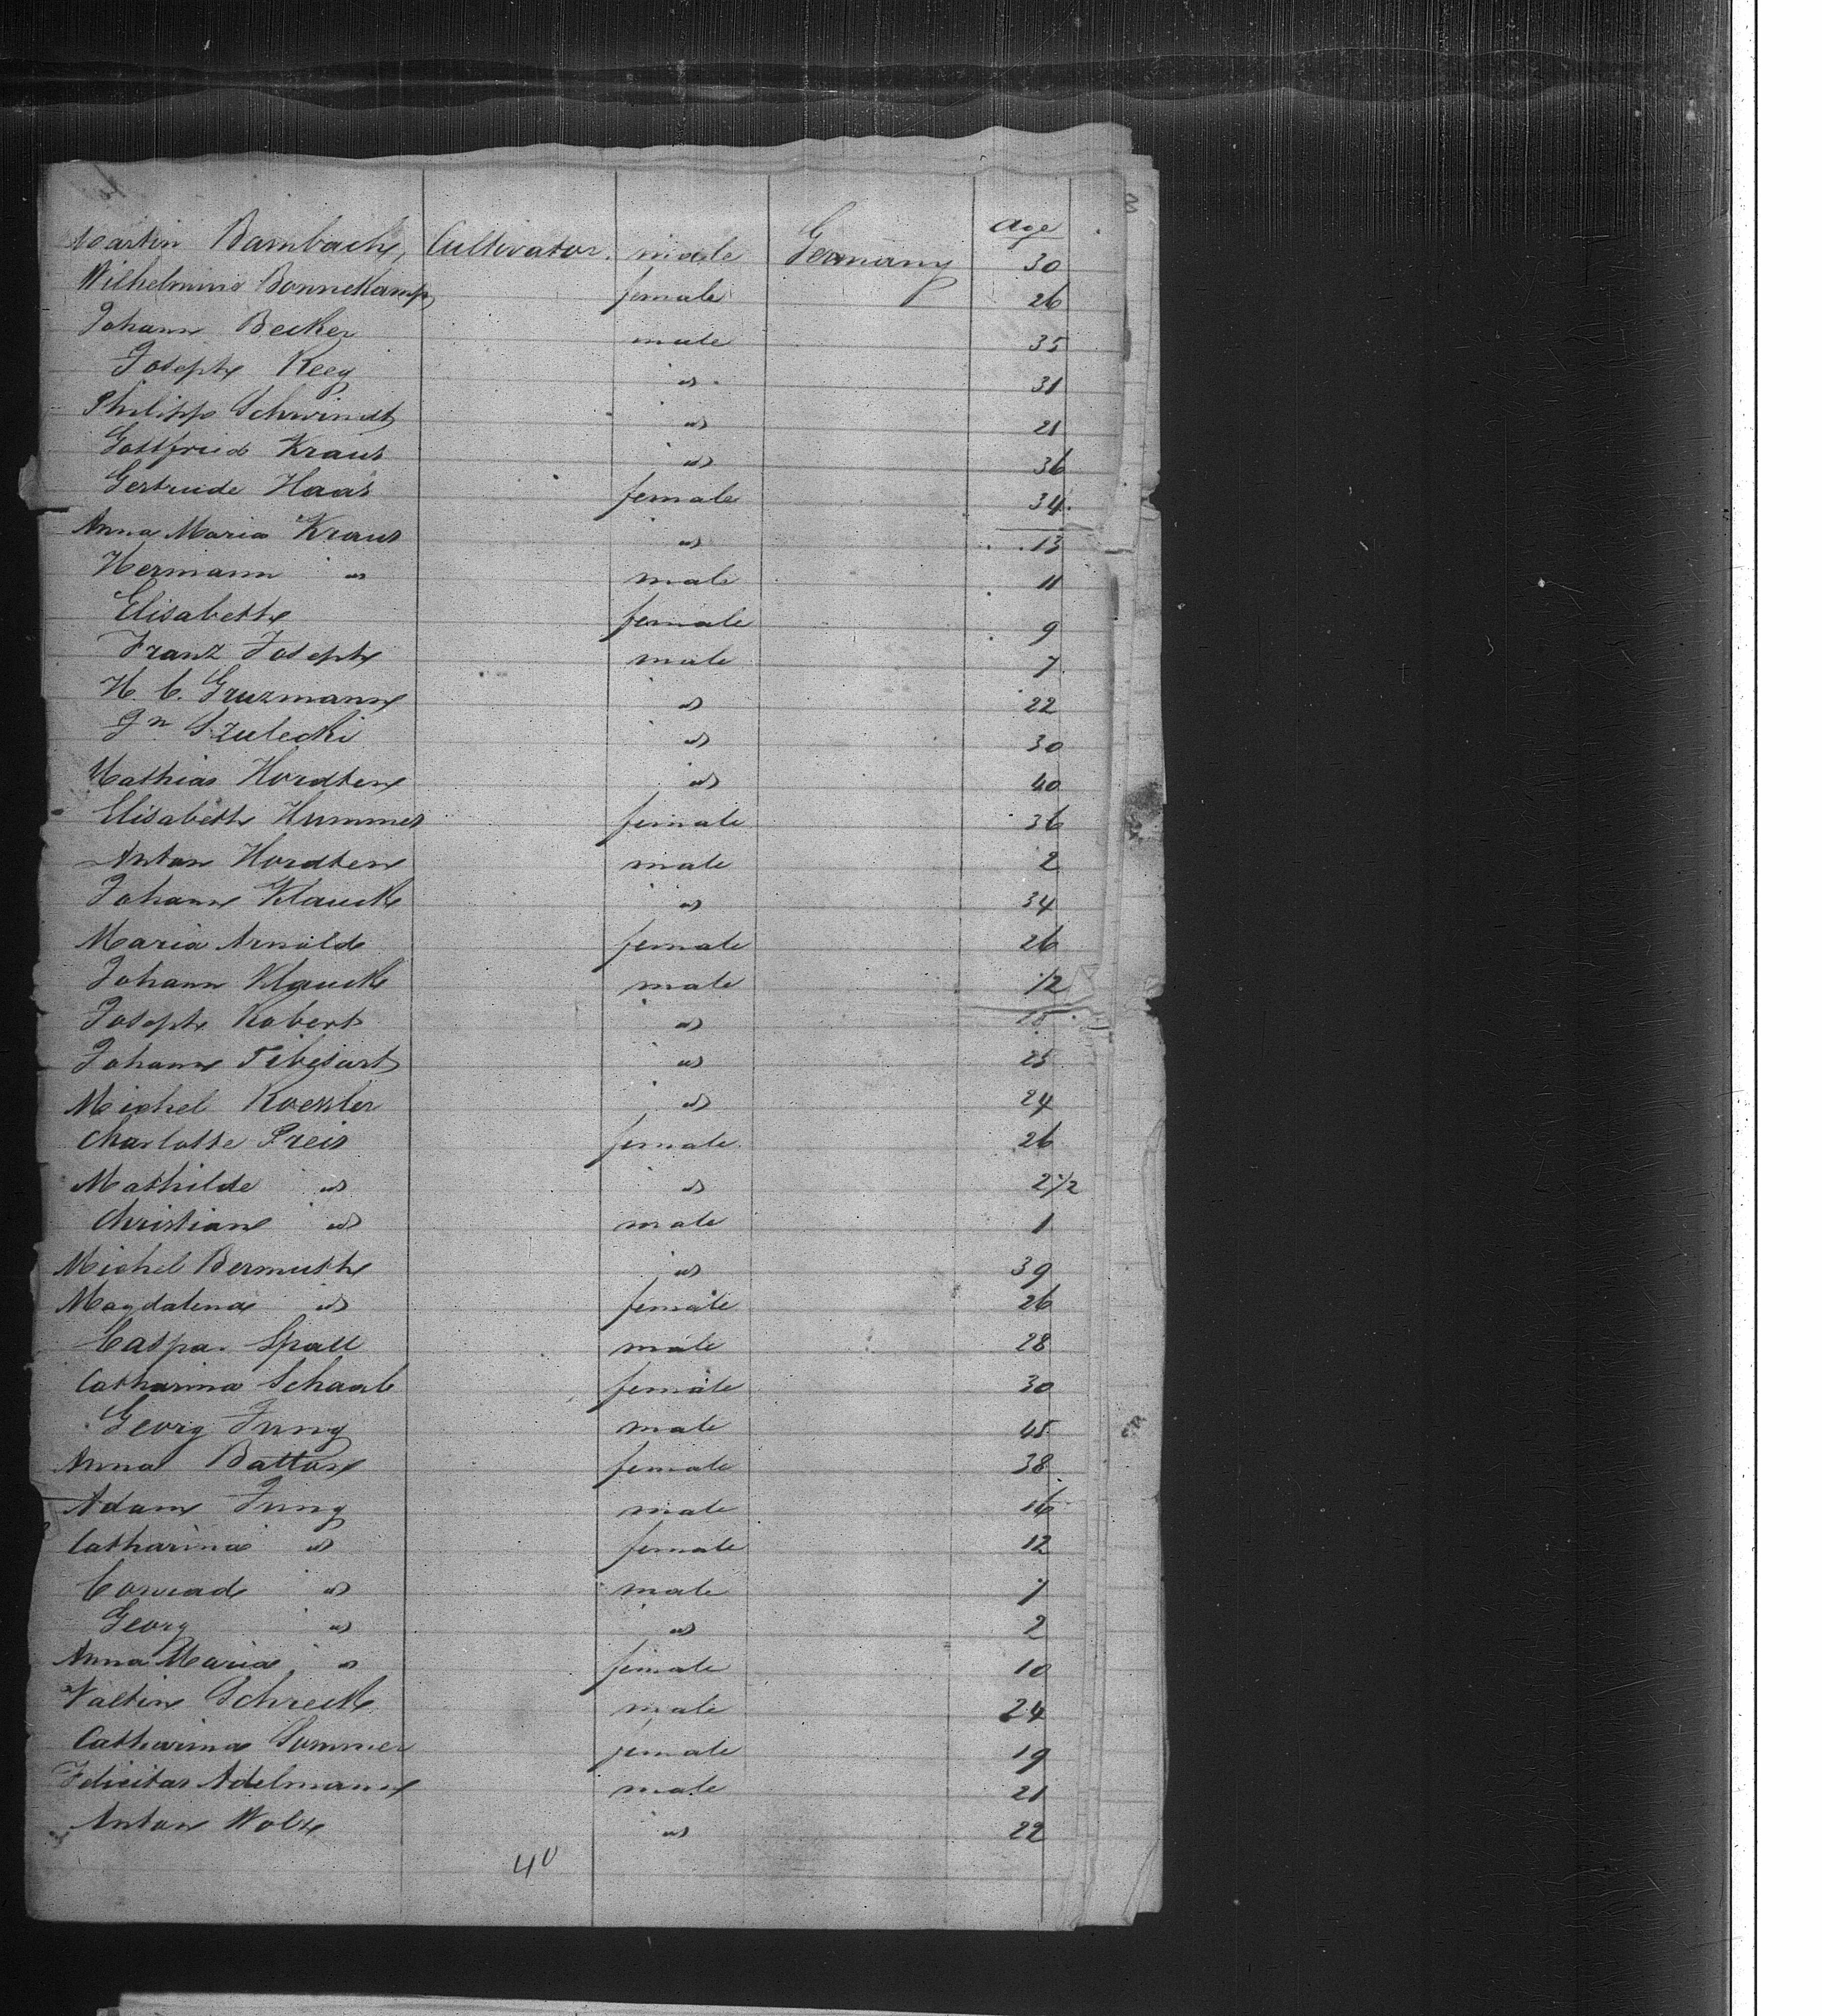 age
Martin Bambach, Cultivator. male Germany 30
Wilhelmina Bonnekamp, female 26
Johann Becker male 35
Joseph Keeg id 31
Philipp Schwindt id 21
Gottfried Kraus id 36
Gertrude Haas female 34
Anna Maria Kraus id 13
Hermann id male 11
Elisabeth female 9
Franz Joseph male 7
H. C. Gruzmann id 22
Jn Szulecki id 30
Mathias Hordten id 40
Elisabeth Hummes female 36
Anton Hordten male 2
Johann Klauck id 34
Maria Arnold female 26
Johann Klauck male 1/2
Joseph Robert id
Johann Tibesart id 25
Michel Koessler id 24
Charlotte Preis female 26
Mathilde id id 2 1/2
Christian id male 1
Michel Bermuth id 39
Magdalena id female 26
Caspar Spall male 28
Catharina Schaab female 30
Georg Jung male 45
Anna Batton female 38
Adam Jung male 16
Catharina id female 12
Conrad id male 7
Georg id id 2
Anna Maria id female 10
Valtin Schreck male 24
Catharina Sommer female 19
Felicitas Adelmann male 21
Anton Wolz id 22
40